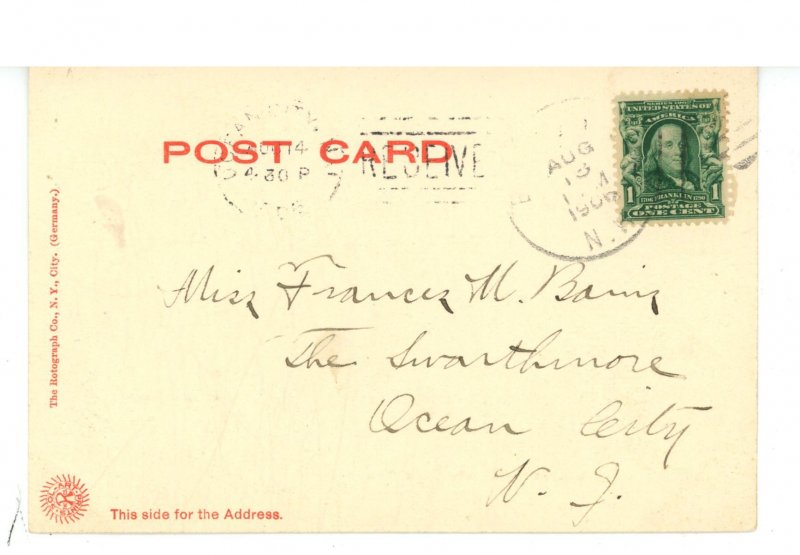 POST CARD
AUG 14
4 30 P
RECEIVED
AUG
13
M
1906
N.Y.
SERIES 1902
UNITED STATES OF
AMERICA
1
1706 FRANKLIN 1790
1
POSTAGE
ONE CENT
The Rotograph Co., N. Y., City. (Germany.)
Miss Frances M. Bains
The Swarthmore
Ocean City
N. J.
This side for the Address.